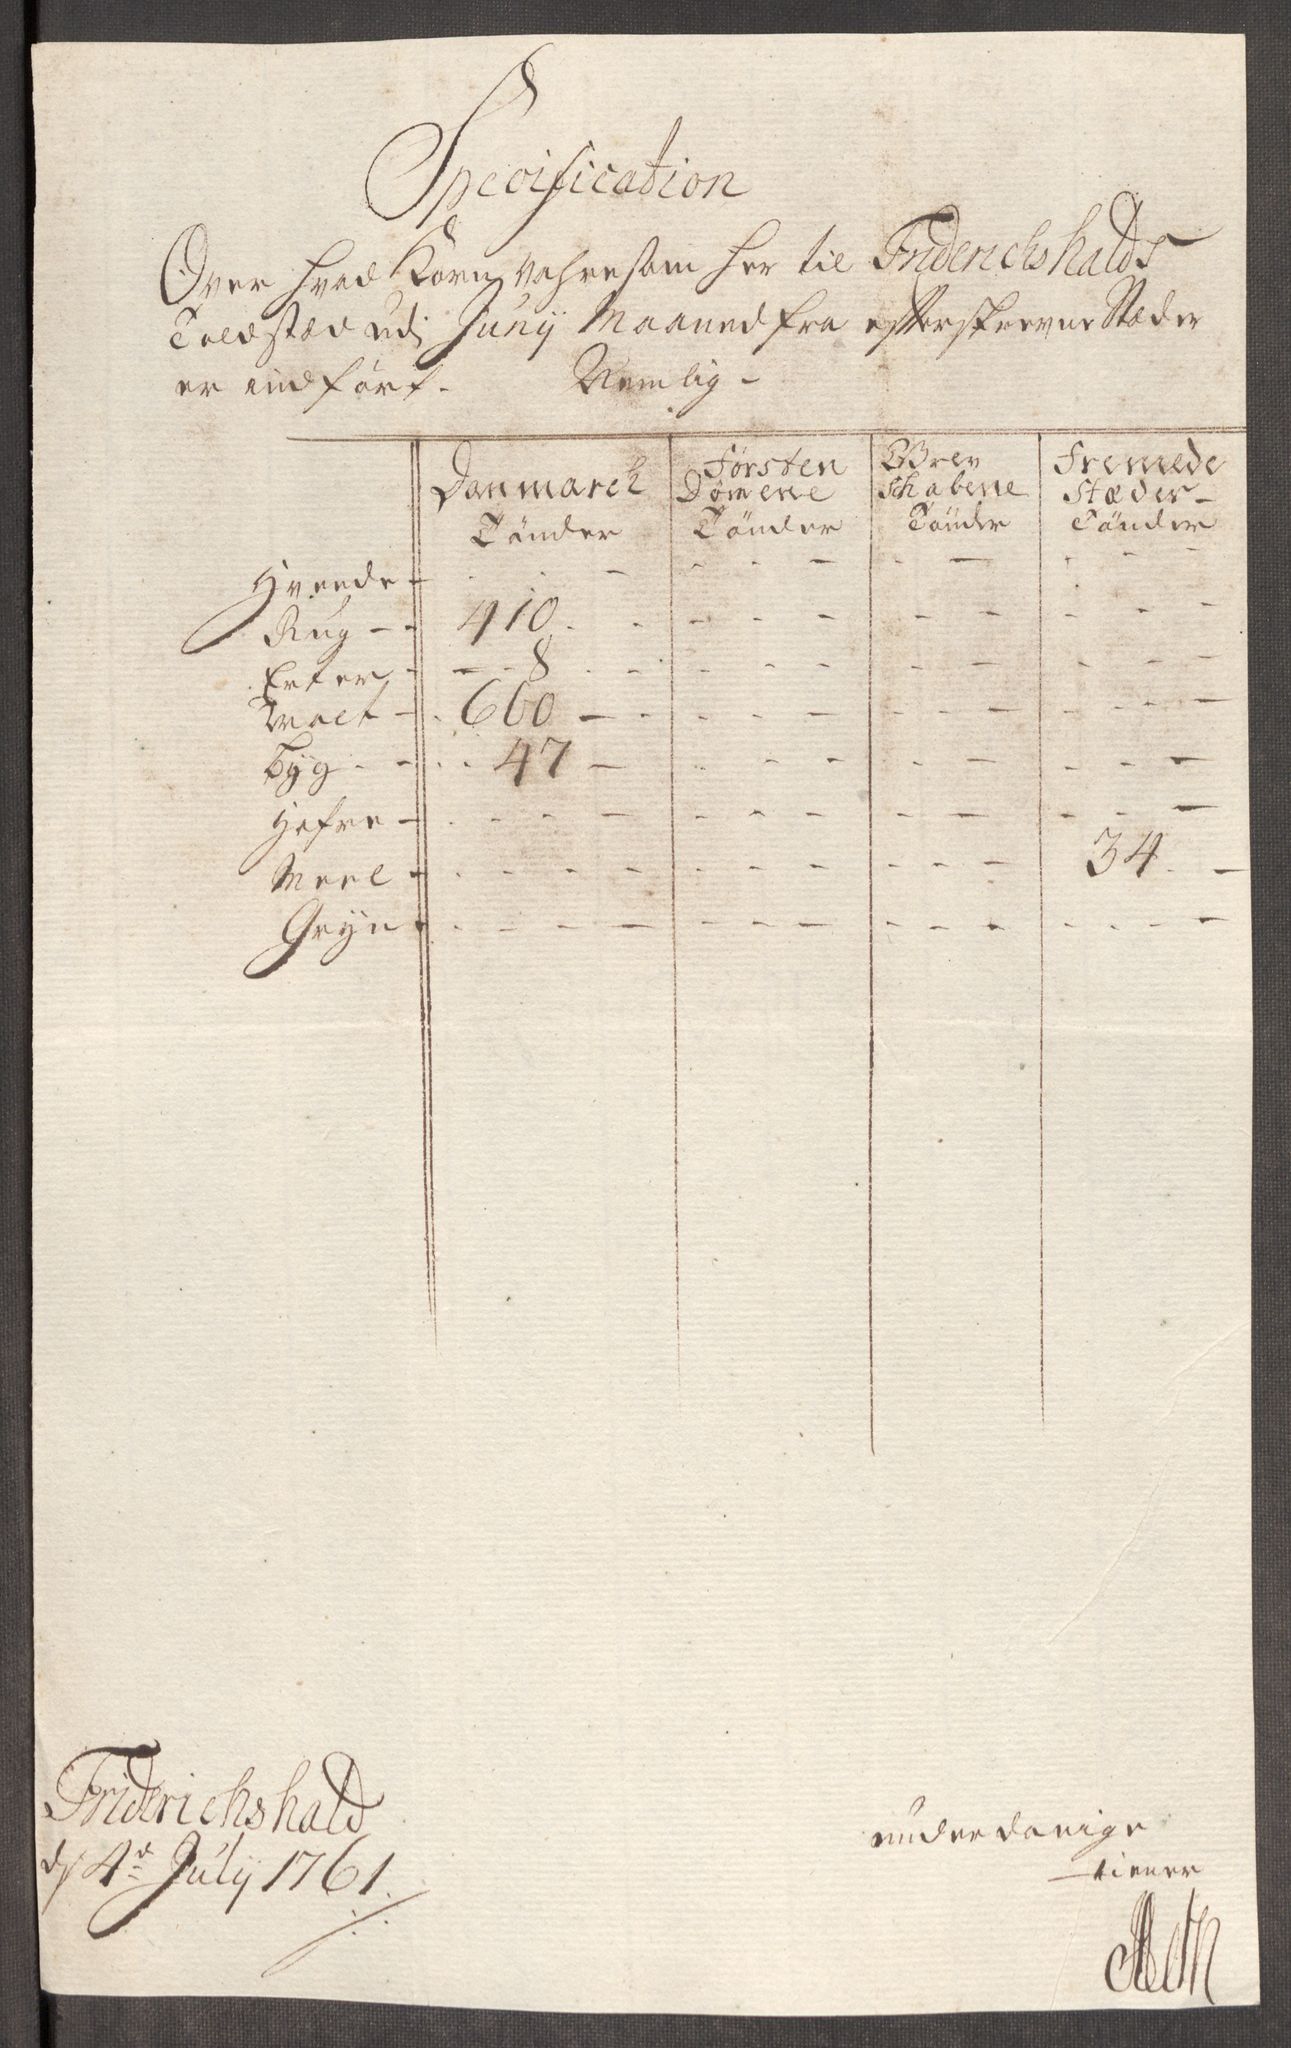 Specification
Over hvad Korn vahre som her til Friderichshalds
Toldstæd udi Junij Maaned fra efterskrevne Stæder
er indført. Nemlig -
Danmarck Tønder | Førsten Dømene Tønder | Grev schabene Tønder | Fremede stæder Tønder
Hvede - - - - -
Rug - - 410. - - - -
Erter - - - 8 - - - -
Malt - - 660 - - - -
Byg - - - 47 - - - -
Hafre - - - - -
Meel - - - - 34 -
Gryn - - - - -
Friderichshald
d 4d July 1761.
underdanige
tiener